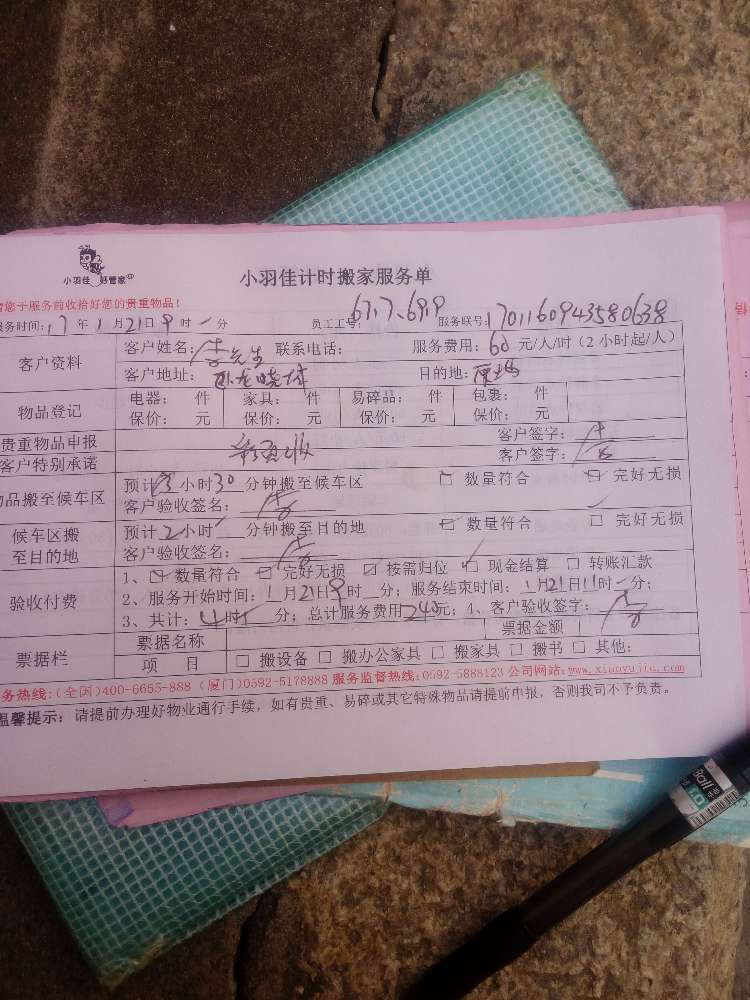 小羽佳 好管家
小羽佳计时搬家服务单
请您于服务前收拾好您的贵重物品!
服务时间:17年1月21日9时 分 员工工号: 服务联号:1701160943580638
客户资料 客户姓名: 先生 联系电话: 服务费用:60元/人/时(2小时起/人)
客户地址:卧龙晓城 目的地:
物品登记 电器: 件 家具: 件 易碎品: 件 包裹: 件
保价: 元 保价: 元 保价: 元 保价: 元
贵重物品申报 客户签字:
客户特别承诺 客户签字:
物品搬至候车区 预计 小时30分钟搬至候车区 □ 数量符合 □ 完好无损
客户验收签名:
候车区搬至目的地 预计2小时 分钟搬至目的地 □ 数量符合 □ 完好无损
客户验收签名:
验收付费 1、□ 数量符合 □ 完好无损 □ 按需归位 □ 现金结算 □ 转账汇款
2、服务开始时间:1月21日9时 分;服务结束时间:1月21日11时 分;
3、共计:4时 分;总计服务费用240元;4、客户验收签字:
票据栏 票据名称 票据金额
项 目 □ 搬设备 □ 搬办公家具 □ 搬家具 □ 搬书 □ 其他:
服务热线:(全国)400-6655-888 (厦门)0592-5178888 服务监督热线:0592-5888123 公司网站:www.xiaoyujia.com
温馨提示:请提前办理好物业通行手续,如有贵重、易碎或其它特殊物品请提前申报,否则我司不予负责。
Ball
1.0